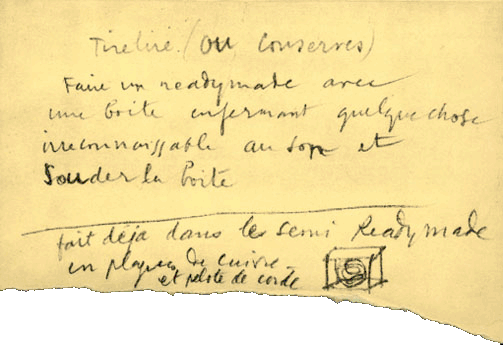 Tirelire. (ou Conserves)
Faire un readymade avec
une boite enfermant quelque chose
irreconnaissable au son et
souder la boite
fait déja dans le semi Readymade
en plaques de cuivre
et pelote de corde